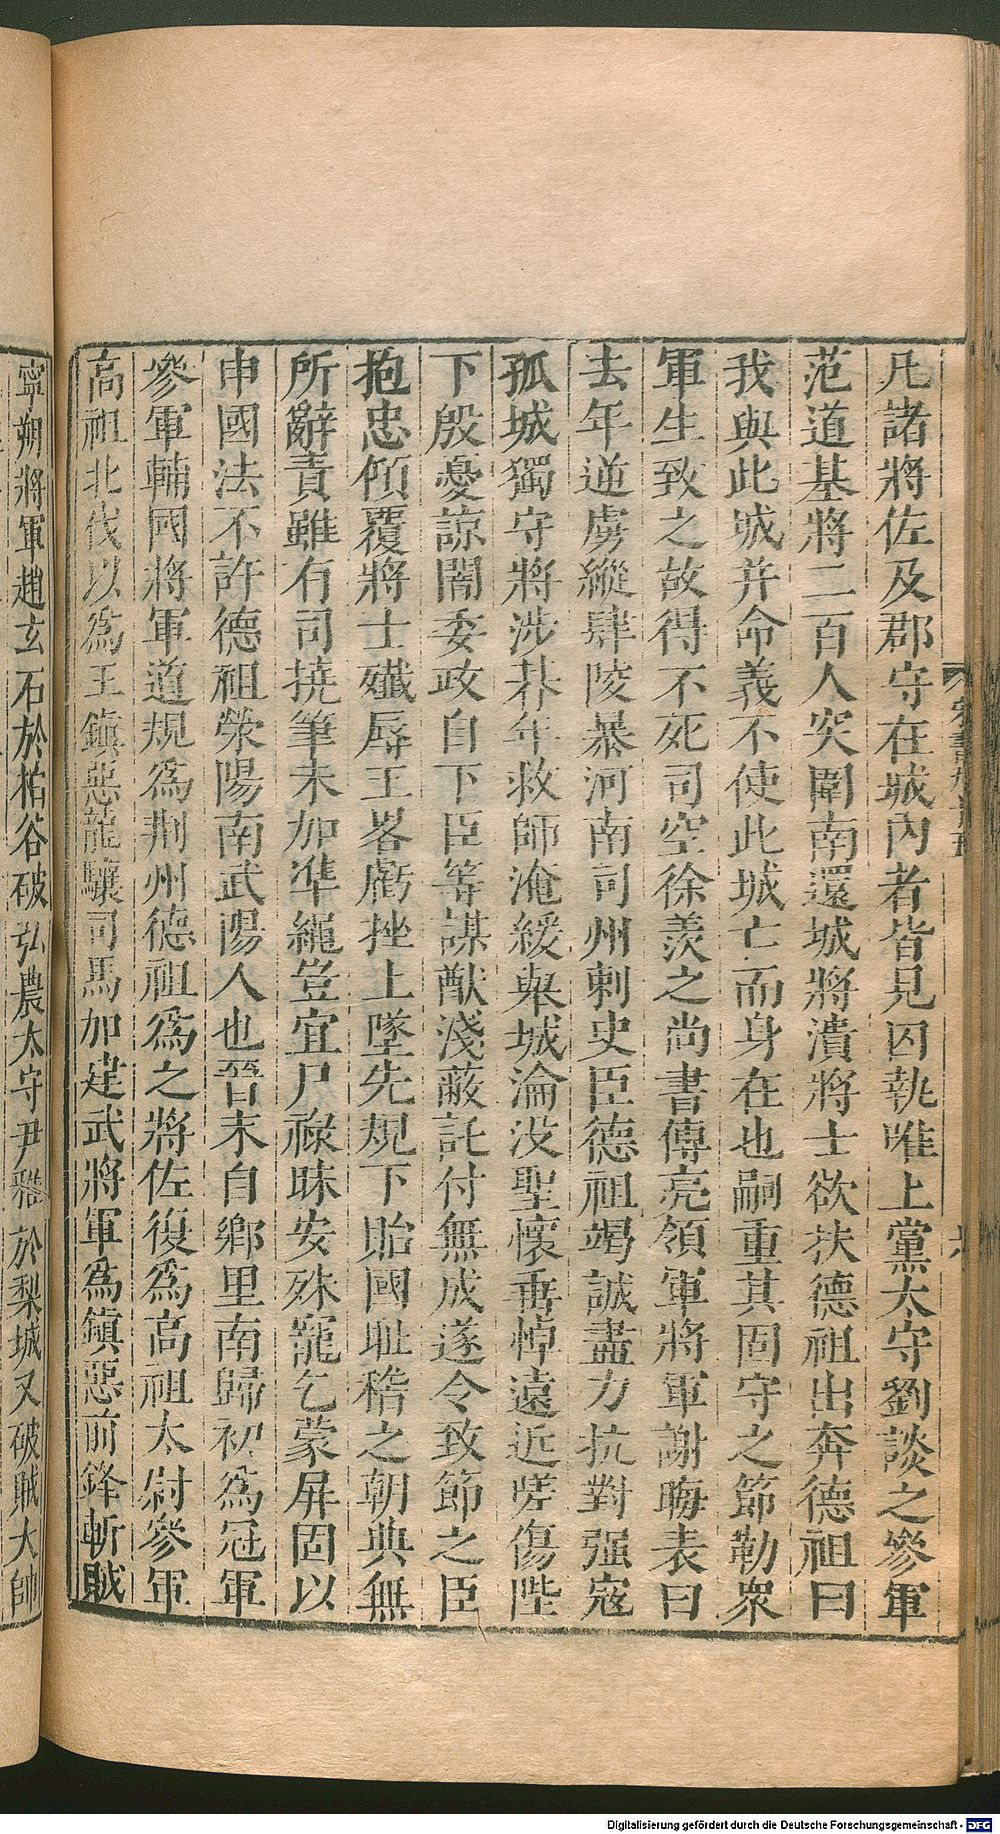 凡諸將佐及郡守在城內者皆見囚執唯上黨太守劉談之參軍
范道基將二百人突圍南還城將潰將士欲扶德祖出奔德祖曰
我與此城并命義不使此城亡而身在也嗣重其固守之節勒衆
軍生致之故得不死司空徐羨之尚書傅亮領軍將軍謝晦表曰
去年逆虜縱肆陵暴河南司州刺史臣德祖竭誠盡力抗對强寇
孤城獨守將涉朞年救師淹緩舉城淪没聖懷垂悼遠近嗟傷陛
下殷憂諒闇委政自下臣等謀猷淺蔽託付無成遂令致節之臣
抱忠傾覆將士殱辱王畧虧挫上墜先規下貽國耻稽之朝典無
所辭責雖有司撓筆未加凖繩豈宜尸祿昧安殊寵乞蒙屏固以
申國法不許德祖滎陽南武陽人也晉末自鄉里南歸初爲冠軍
參軍輔國將軍道規爲荆州德祖爲之將佐復爲高祖太尉參軍
高祖北伐以爲王鎭惡龍驤司馬加建武將軍爲鎭惡前鋒斬賊
寧朔將軍趙玄石於栢谷破弘農太守尹雅於梨城又破賊大帥
Digitalisierung gefördert durch die Deutsche Forschungsgemeinschaft - DFG